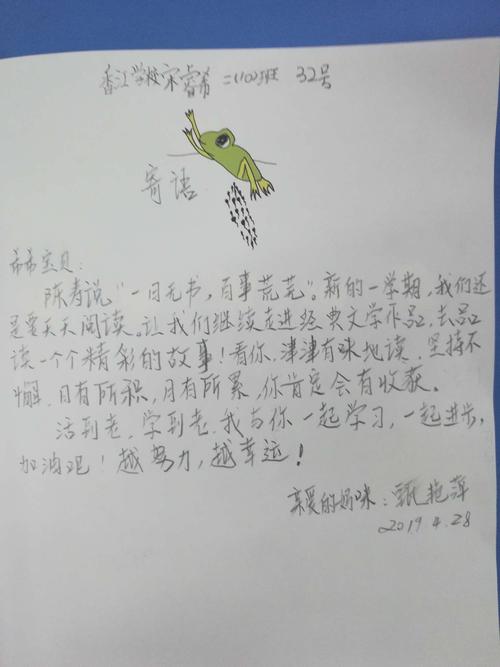 香江学校宋睿希 二(10)班 32号
寄语
希希宝贝:
陈寿说“一日无书,百事荒芜”。新的一学期,我们还
是要天天阅读。让我们继续走进经典文学作品,去品
读一个个精彩的故事!看你,津津有味地读,坚持不
懈,日有所积,月有所累,你肯定会有收获。
活到老,学到老,我与你一起学习,一起进步,
加油吧!越努力,越幸运!
亲爱的妈咪:甄艳萍
2019.4.28